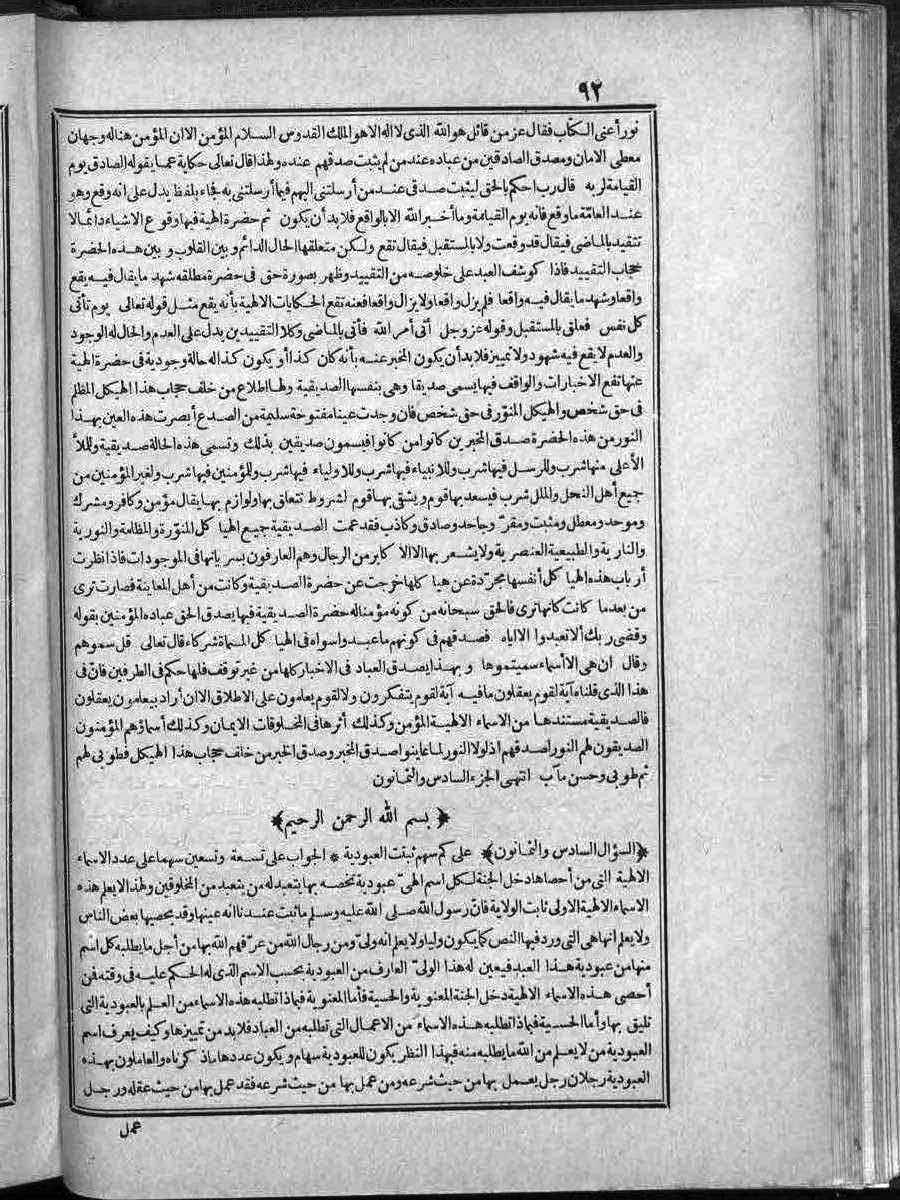 ٩٢
نورا أعنى الكتاب فقال عز من قائل هو الله الذى لا اله الا هو الملك القدوس السلام المؤمن الا ان المؤمن هنا له وجهان
معطى الامان ومصدق الصادقين من عباده عند من لم يثبت صدقهم عنده ولهذا قال تعالى حكاية عما يقوله الصادق يوم
القيامة لربه قال رب احكم بالحق ليثبت صدقى عند من أرسلتنى اليهم فيما أرسلتنى به فجاء بلفظ يدل على انه وقع وهو
عند العامّة ما وقع فانه يوم القيامة وما أخبر الله الا بالواقع فلا بد أن يكون ثم حضرة الهية فيها وقوع الاشياء دائما لا
تتقيد بالماضى فيقال قد وقعت ولا بالمستقبل فيقال تقع ولكن متعلقها الحال الدائم وبين القلوب وبين هذه الحضرة
حجاب التقييد فاذا كوشف العبد على خلوصه من التقييد وظهر بصورة حق فى حضرة مطلقه شهد ما يقال فيه يقع
واقعا وشهد ما يقال فيه واقعا فلم يزل واقعا ولا يزال واقعا فعنه تقع الحكايات الالهية بأنه يقع مثل قوله تعالى يوم تأتى
كل نفس فعلق بالمستقبل وقوله عز وجل أتى أمر الله فأتى بالماضى وكلا التقييدين يدل على العدم والحال له الوجود
والعدم لا يقع فيه شهود ولا تمييز فلا بد أن يكون المخبر عنه بأنه كان كذا أو يكون كذا له حالة وجودية فى حضرة الهية
عنها تقع الاخبارات والواقف فيها يسمى صديقا وهى بنفسها الصديقية ولها اطلاع من خلف حجاب هذا الهيكل المظلم
فى حق شخص والهيكل المنوّر فى حق شخص فان وجدت عينا مفتوحة سليمة من الصدع أبصرت هذه العين بهذا
النور من هذه الحضرة صدق المخبرين كانوا من كانوا فيسمون صديقين بذلك وتسمى هذه الحالة صديقية وللملأ
الأعلى منها شرب وللرسل فيها شرب وللانبياء فيها شرب وللاولياء فيها شرب وللمؤمنين فيها شرب ولغير المؤمنين من
جميع أهل النحل والملل شرب فيسعد بها قوم ويشقى بها قوم لشروط تتعلق بها ولوازم بها يقال مؤمن وكافر ومشرك
وموحد ومعطل ومثبت ومقرّ وجاحد وصادق وكاذب فقد عمت الصديقية جميع الهياكل المنوّرة والمظلمة والنورية
والنارية والطبيعية العنصرية ولا يشعر بها الا الا كابر من الرجال وهم العارفون بسريانها فى الموجودات فاذا نظرت
أرباب هذه الهياكل أنفسها مجرّدة عن هياكلها خرجت عن حضرة الصديقية وكانت من أهل المعاينة فصارت ترى
من بعد ما كانت كانها ترى فالحق سبحانه من كونه مؤمنا له حضرة الصديقية فيها يصدق الحق عباده المؤمنين بقوله
وقضى ربك ألا تعبدوا الا اياه فصدقهم فى كونهم ما عبدوا سواه فى الهياكل المسماة شركاء قال تعالى قل سموهم
وقال ان هى الا أسماء سميتموها وبهذا يصدق العباد فى الاخبار كلها من غير توقف فلها حكم فى الطرفين فانّ فى
هذا الذى قلناه آية لقوم يعقلون ما فيه آية لقوم يتفكرون ولا لقوم يعلمون على الاطلاق الا ان أراد بيعلمون يعقلون
فالصديقية مستندها من الاسماء الالهية المؤمن وكذلك أثرها فى المخلوقات الايمان وكذلك أسماؤهم المؤمنون
الصديقون لهم النور لصدقهم اذ لولا النور لما عاينوا صدق المخبر وصدق الخبر من خلف حجاب هذا الهيكل فطوبى لهم
ثم طوبى وحسن مآب انتهى الجزء السادس والثمانون
﴿ بسم الله الرحمن الرحيم ﴾
﴿السؤال السادس والثمانون﴾ على كم سهم ثبتت العبودية * الجواب على تسعة وتسعين سهما على عدد الاسماء
الالهية التى من أحصاها دخل الجنة لكل اسم الهىّ عبودية تخصه بها يتعبد له من يتعبد من المخلوقين ولهذا لا يعلم هذه
الاسماء الالهية الا ولى ثابت الولاية فانّ رسول الله صلى الله عليه وسلم ما ثبت عندنا انه عينها وقد يحصيها بعض الناس
ولا يعلم انها هى التى ورد فيها النص كما يكون وليا ولا يعلم انه ولىّ ومن رجال الله من عرّفهم الله بها من أجل ما يطلبه كل اسم
منها من عبودية هذا العبد فيعين له هذا الولىّ العارف من العبودية بحسب الاسم الذى له الحكم عليه فى وقته فمن
أحصى هذه الاسماء الالهية دخل الجنة المعنوية والحسية فأما المعنوية فبما ذا تطلبه هذه الاسماء من العلم بالعبودية التى
تليق بها وأما الحسية فبما ذا تطلبه هذه الاسماء من الاعمال التى تطلبه من العباد فلا بد من تمييزها وكيف يعرف اسم
العبودية من لا يعلم من الله ما يطلبه منه فبهذا النظر يكون للعبودية سهام ويكون عددها ما ذكرناه والعاملون بهذه
العبودية رجلان رجل يعمل بها من حيث شرعه ومن عمل بها من حيث شرعه فقد عمل بها من حيث عقله ورجل
عمل